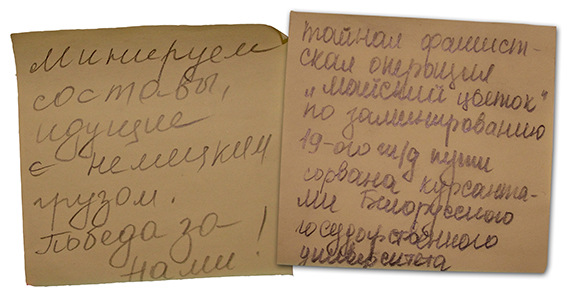 Минируем
составы,
идущие
с немецким
грузом.
Победа за
нами!
тайная фашист-
ская операция
„майский цветок“
по заминированию
19-ого ж/д пути
сорвана курсанта-
ми Белорусского
государственного
университета